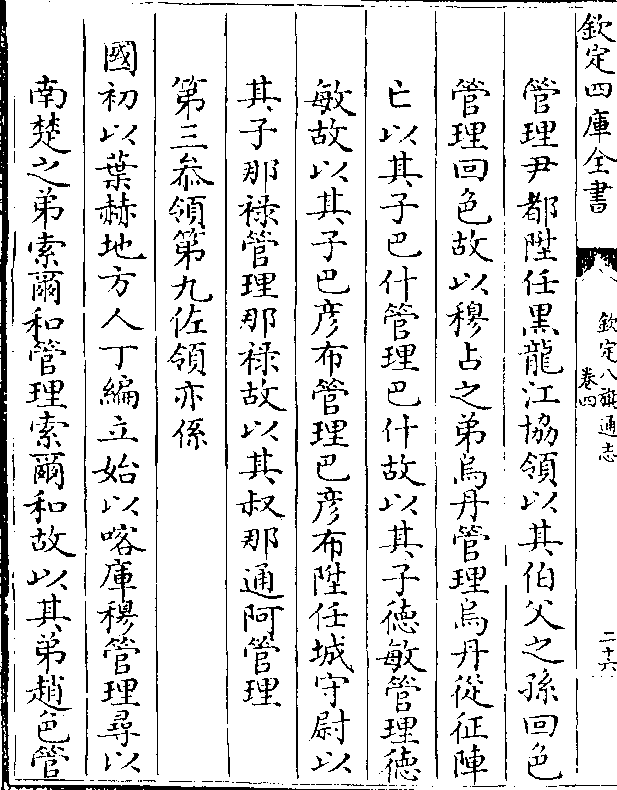 欽定四庫全書
欽定八旗通志
卷四
二十六
管理尹都陞任黑龍江協領以其伯父之孫回色
管理回色故以穆占之弟烏丹管理烏丹從征陣
亡以其子巴什管理巴什故以其子德敏管理德
敏故以其子巴彦布管理巴彦布陞任城守尉以
其子那禄管理那禄故以其叔那通阿管理
第三叅領第九佐領亦係
國初以葉赫地方人丁編立始以喀庫穆管理尋以
南楚之弟索爾和管理索爾和故以其弟趙色管